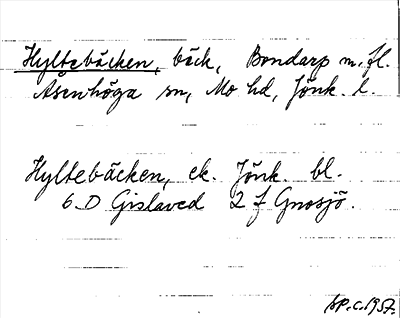 Hyltebäcken, bäck, Bondarp m.fl.
Åsenhöga sn, Mo hd, Jönk. l.
Hyltebäcken, ek. Jönk. bl.
6 D Gislaved 2 f Gnosjö.
AP.C.1957.